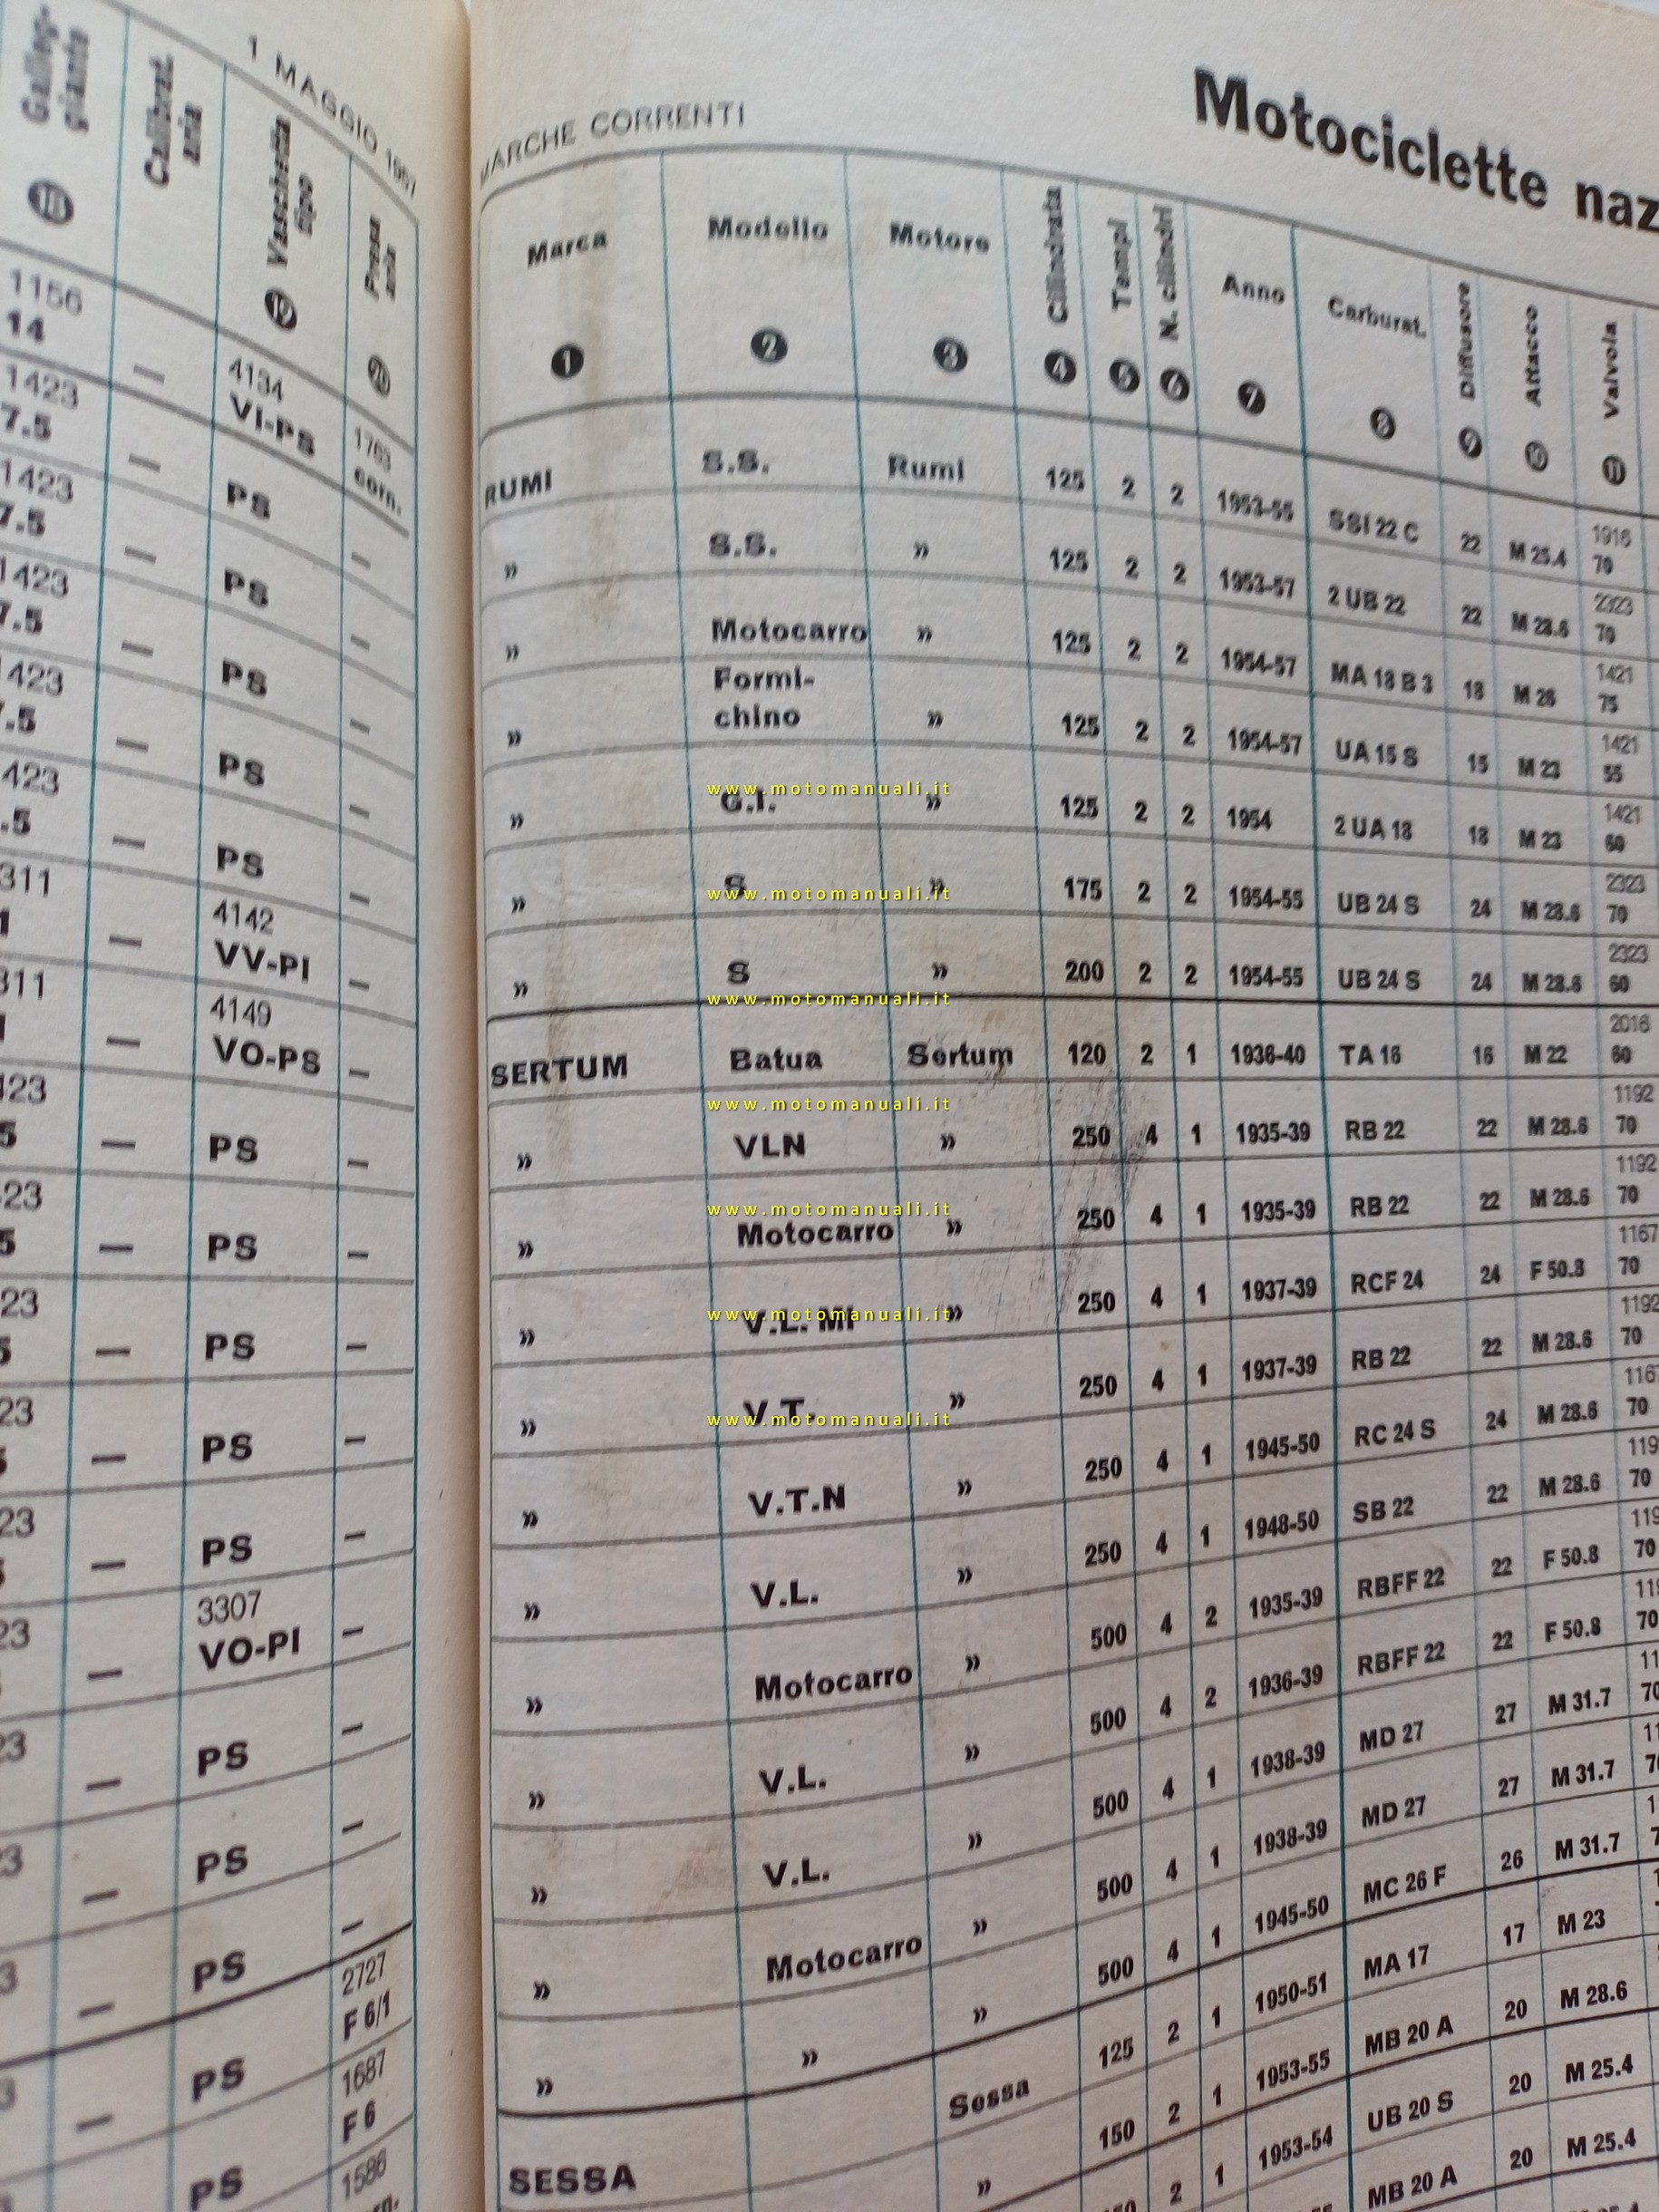 1 MAGGIO 1957
Galleg-
giante
Calibrat.
aria
Vaschetta
tipo
Presa
aria
18 19 20
1156
14 — 4134
VI-PS 1763
corn.
1423
7.5 — PS —
1423
7.5 — PS —
1423
7.5 — PS —
1423
7.5 — PS —
423
.5 — PS —
311
1 — 4142
VV-PI —
311
— 4149
VO-PS —
423
5 — PS —
23
5 — PS —
23
— PS —
23
— PS —
23
— PS —
23
— 3307
VO-PI —
23
— PS —
3
— PS —
3
— PS 2727
F 6/1
3
— PS 1687
F 6
PS 1586
MARCHE CORRENTI
Motociclette naz
Marca Modello Motore Cilindrata Tempi N. cilindri Anno Carburat. Diffusore Attacco Valvola
1 2 3 4 5 6 7 8 9 10 11
RUMI S.S. Rumi 125 2 2 1953-55 SSI 22 C 22 M 25.4 1916
70
» S.S. » 125 2 2 1953-57 2 UB 22 22 M 28.6 2323
70
» Motocarro » 125 2 2 1954-57 MA 18 B 3 18 M 26 1421
75
» Formi-
chino » 125 2 2 1954-57 UA 15 S 15 M 23 1421
55
» G.I. » 125 2 2 1954 2 UA 18 18 M 23 1421
60
» S » 175 2 2 1954-55 UB 24 S 24 M 28.6 2323
70
» S » 200 2 2 1954-55 UB 24 S 24 M 28.6 2323
60
SERTUM Batua Sertum 120 2 1 1936-40 TA 16 16 M 22 2016
60
» VLN » 250 4 1 1935-39 RB 22 22 M 28.6 1192
70
» Motocarro » 250 4 1 1935-39 RB 22 22 M 28.6 1192
70
» V.L. MI » 250 4 1 1937-39 RCF 24 24 F 50.8 1167
70
» V.T. » 250 4 1 1937-39 RB 22 22 M 28.6 1192
70
» V.T.N » 250 4 1 1945-50 RC 24 S 24 M 28.6 116
70
» V.L. » 250 4 1 1948-50 SB 22 22 M 28.6 119
70
» Motocarro » 500 4 2 1935-39 RBFF 22 22 F 50.8 119
70
» V.L. » 500 4 2 1936-39 RBFF 22 22 F 50.8 119
70
» V.L. » 500 4 1 1938-39 MD 27 27 M 31.7 11
70
» Motocarro » 500 4 1 1938-39 MD 27 27 M 31.7 11
» » » 500 4 1 1945-50 MC 26 F 26 M 31.7
SESSA Sessa 125 2 1 1950-51 MA 17 17 M 23
» 150 2 1 1953-55 MB 20 A 20 M 28.6
2 1 1953-54 UB 20 S 20 M 25.4
MB 20 A 20 M 25.4
www.motomanuali.it
www.motomanuali.it
www.motomanuali.it
www.motomanuali.it
www.motomanuali.it
www.motomanuali.it
www.motomanuali.it